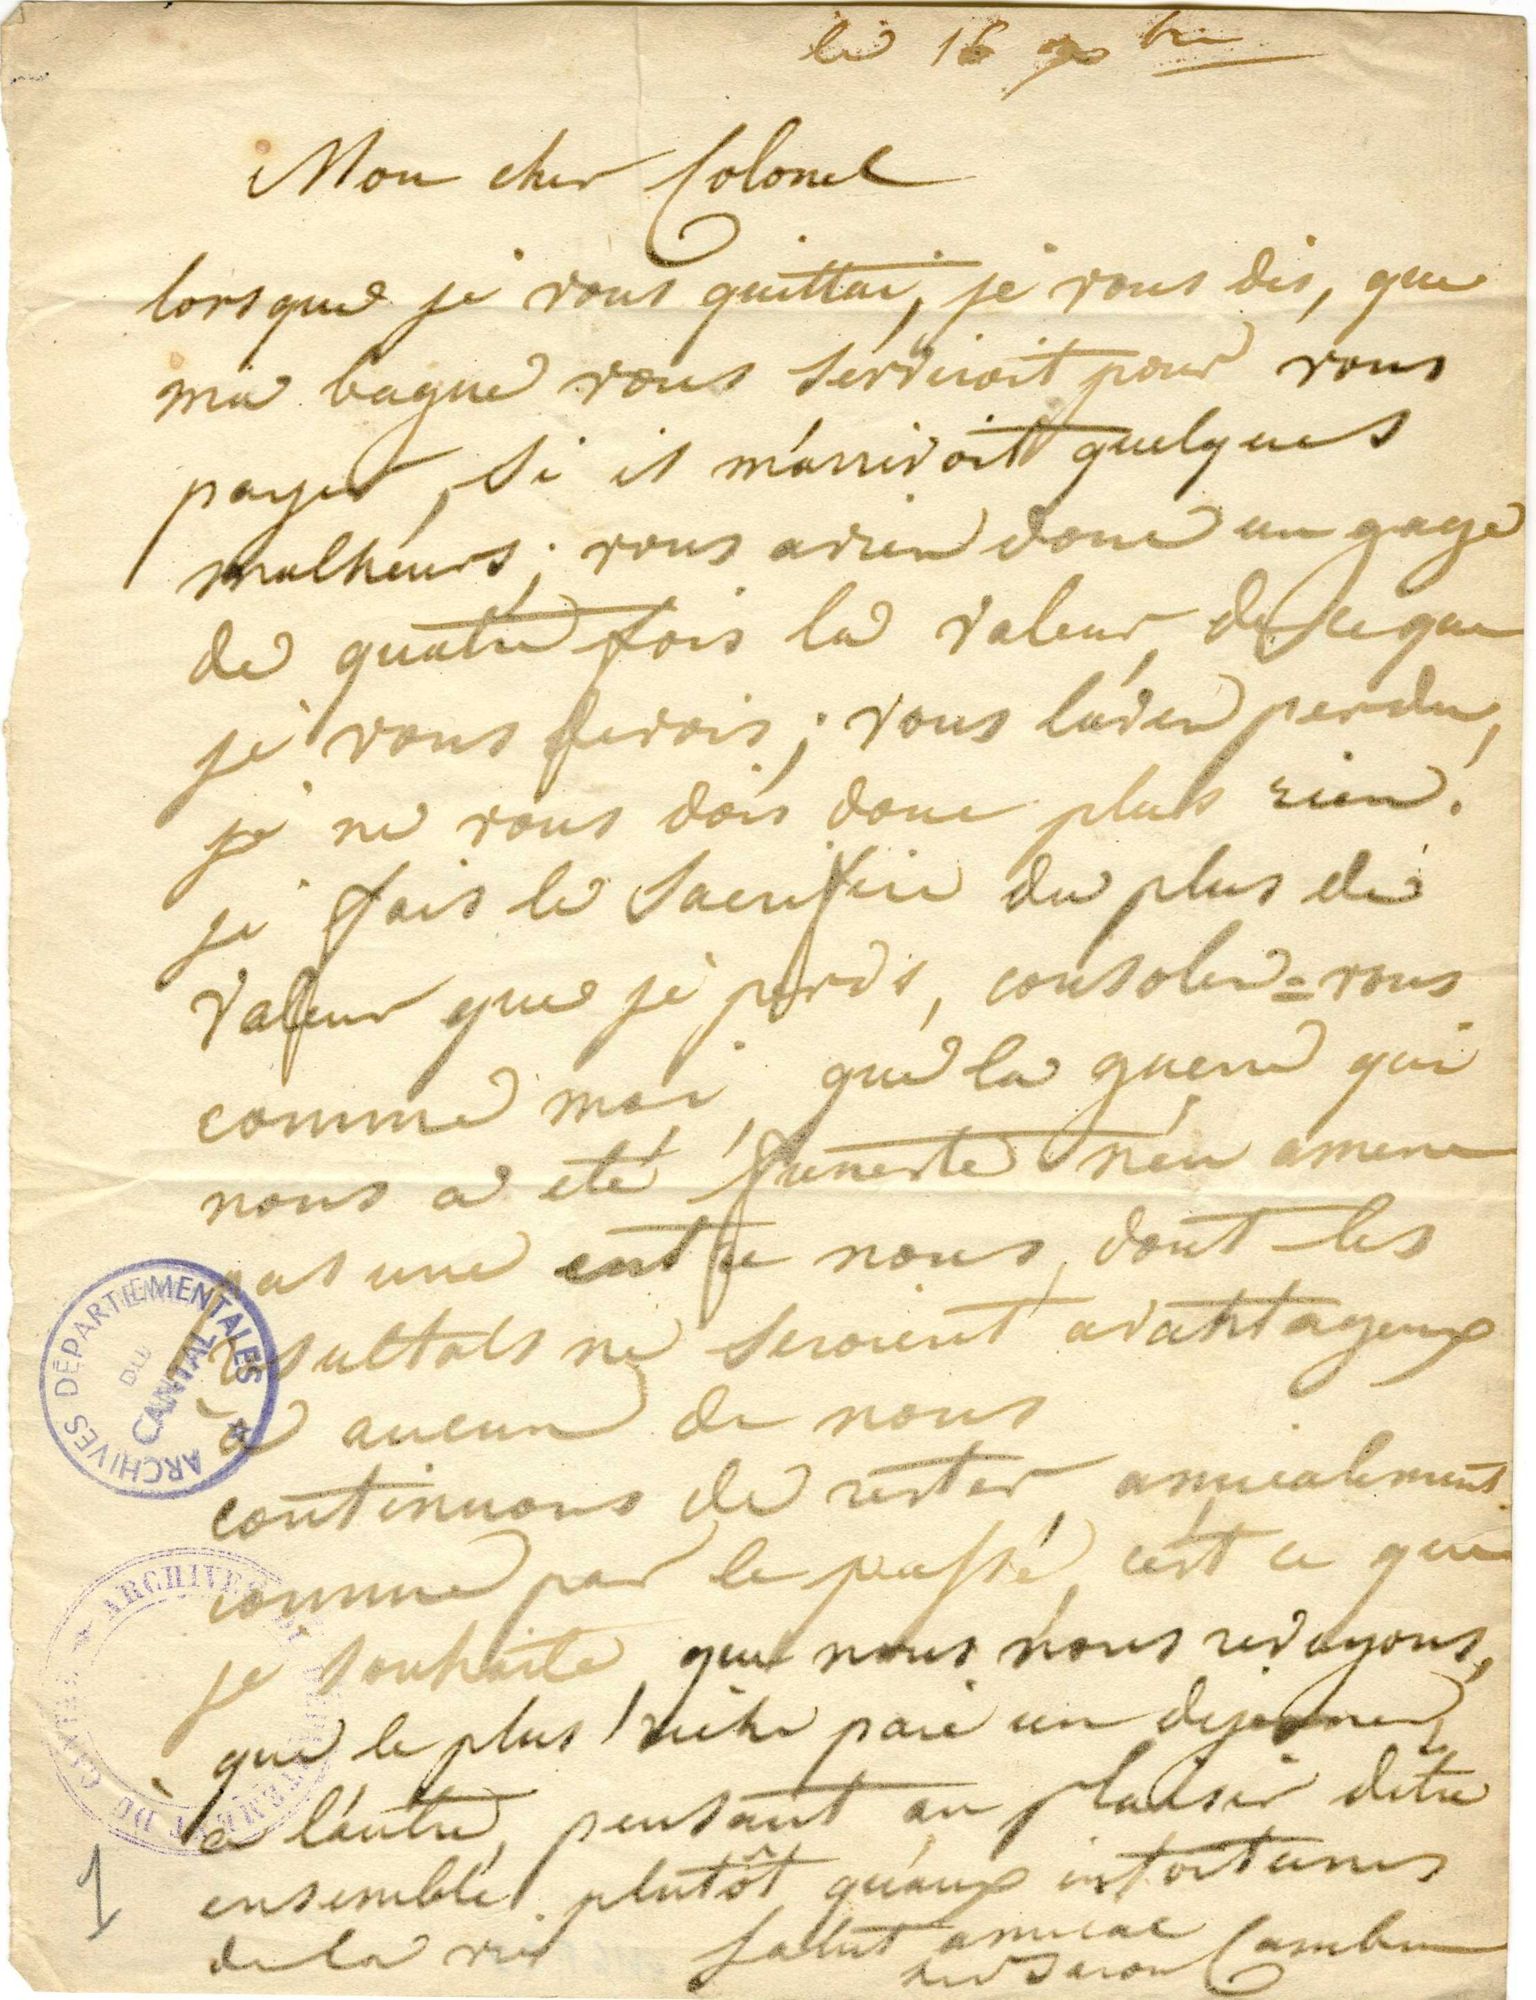 le 16 bre
Mon cher Colonel
lorsque je vous quittai, je vous dis, que
ma bague vous serviroit pour vous
payer, si il m'arrivoit quelques
malheurs; vous avien donc un gage
de quatre fois la valeur, de ce que
je vous devois; vous l'aven perdu,
je ne vous dois donc plus rien.
je fais le sacrifice du plus de
valeur que je perds, consolen=vous
comme moi, que la guerre qui
nous a eté funeste n'en amene
pas une entre nous, dont les
resultats ne seroient avantageux
à aucun de nous
continuons de rester, amicalement
comme par le passé, c'est ce que
je souhaite, que nous nous revoyons,
que le plus riche paie un dejeuner,
à l'autre, pensant au plaisir detre
ensemble plutôt qu'aux infortunes
de la vie Salut amical
Baron Cambronne
ARCHIVES DÉPARTEMENTALES
DU
CANTAL
ARCHIVES
DU CANTAL
1